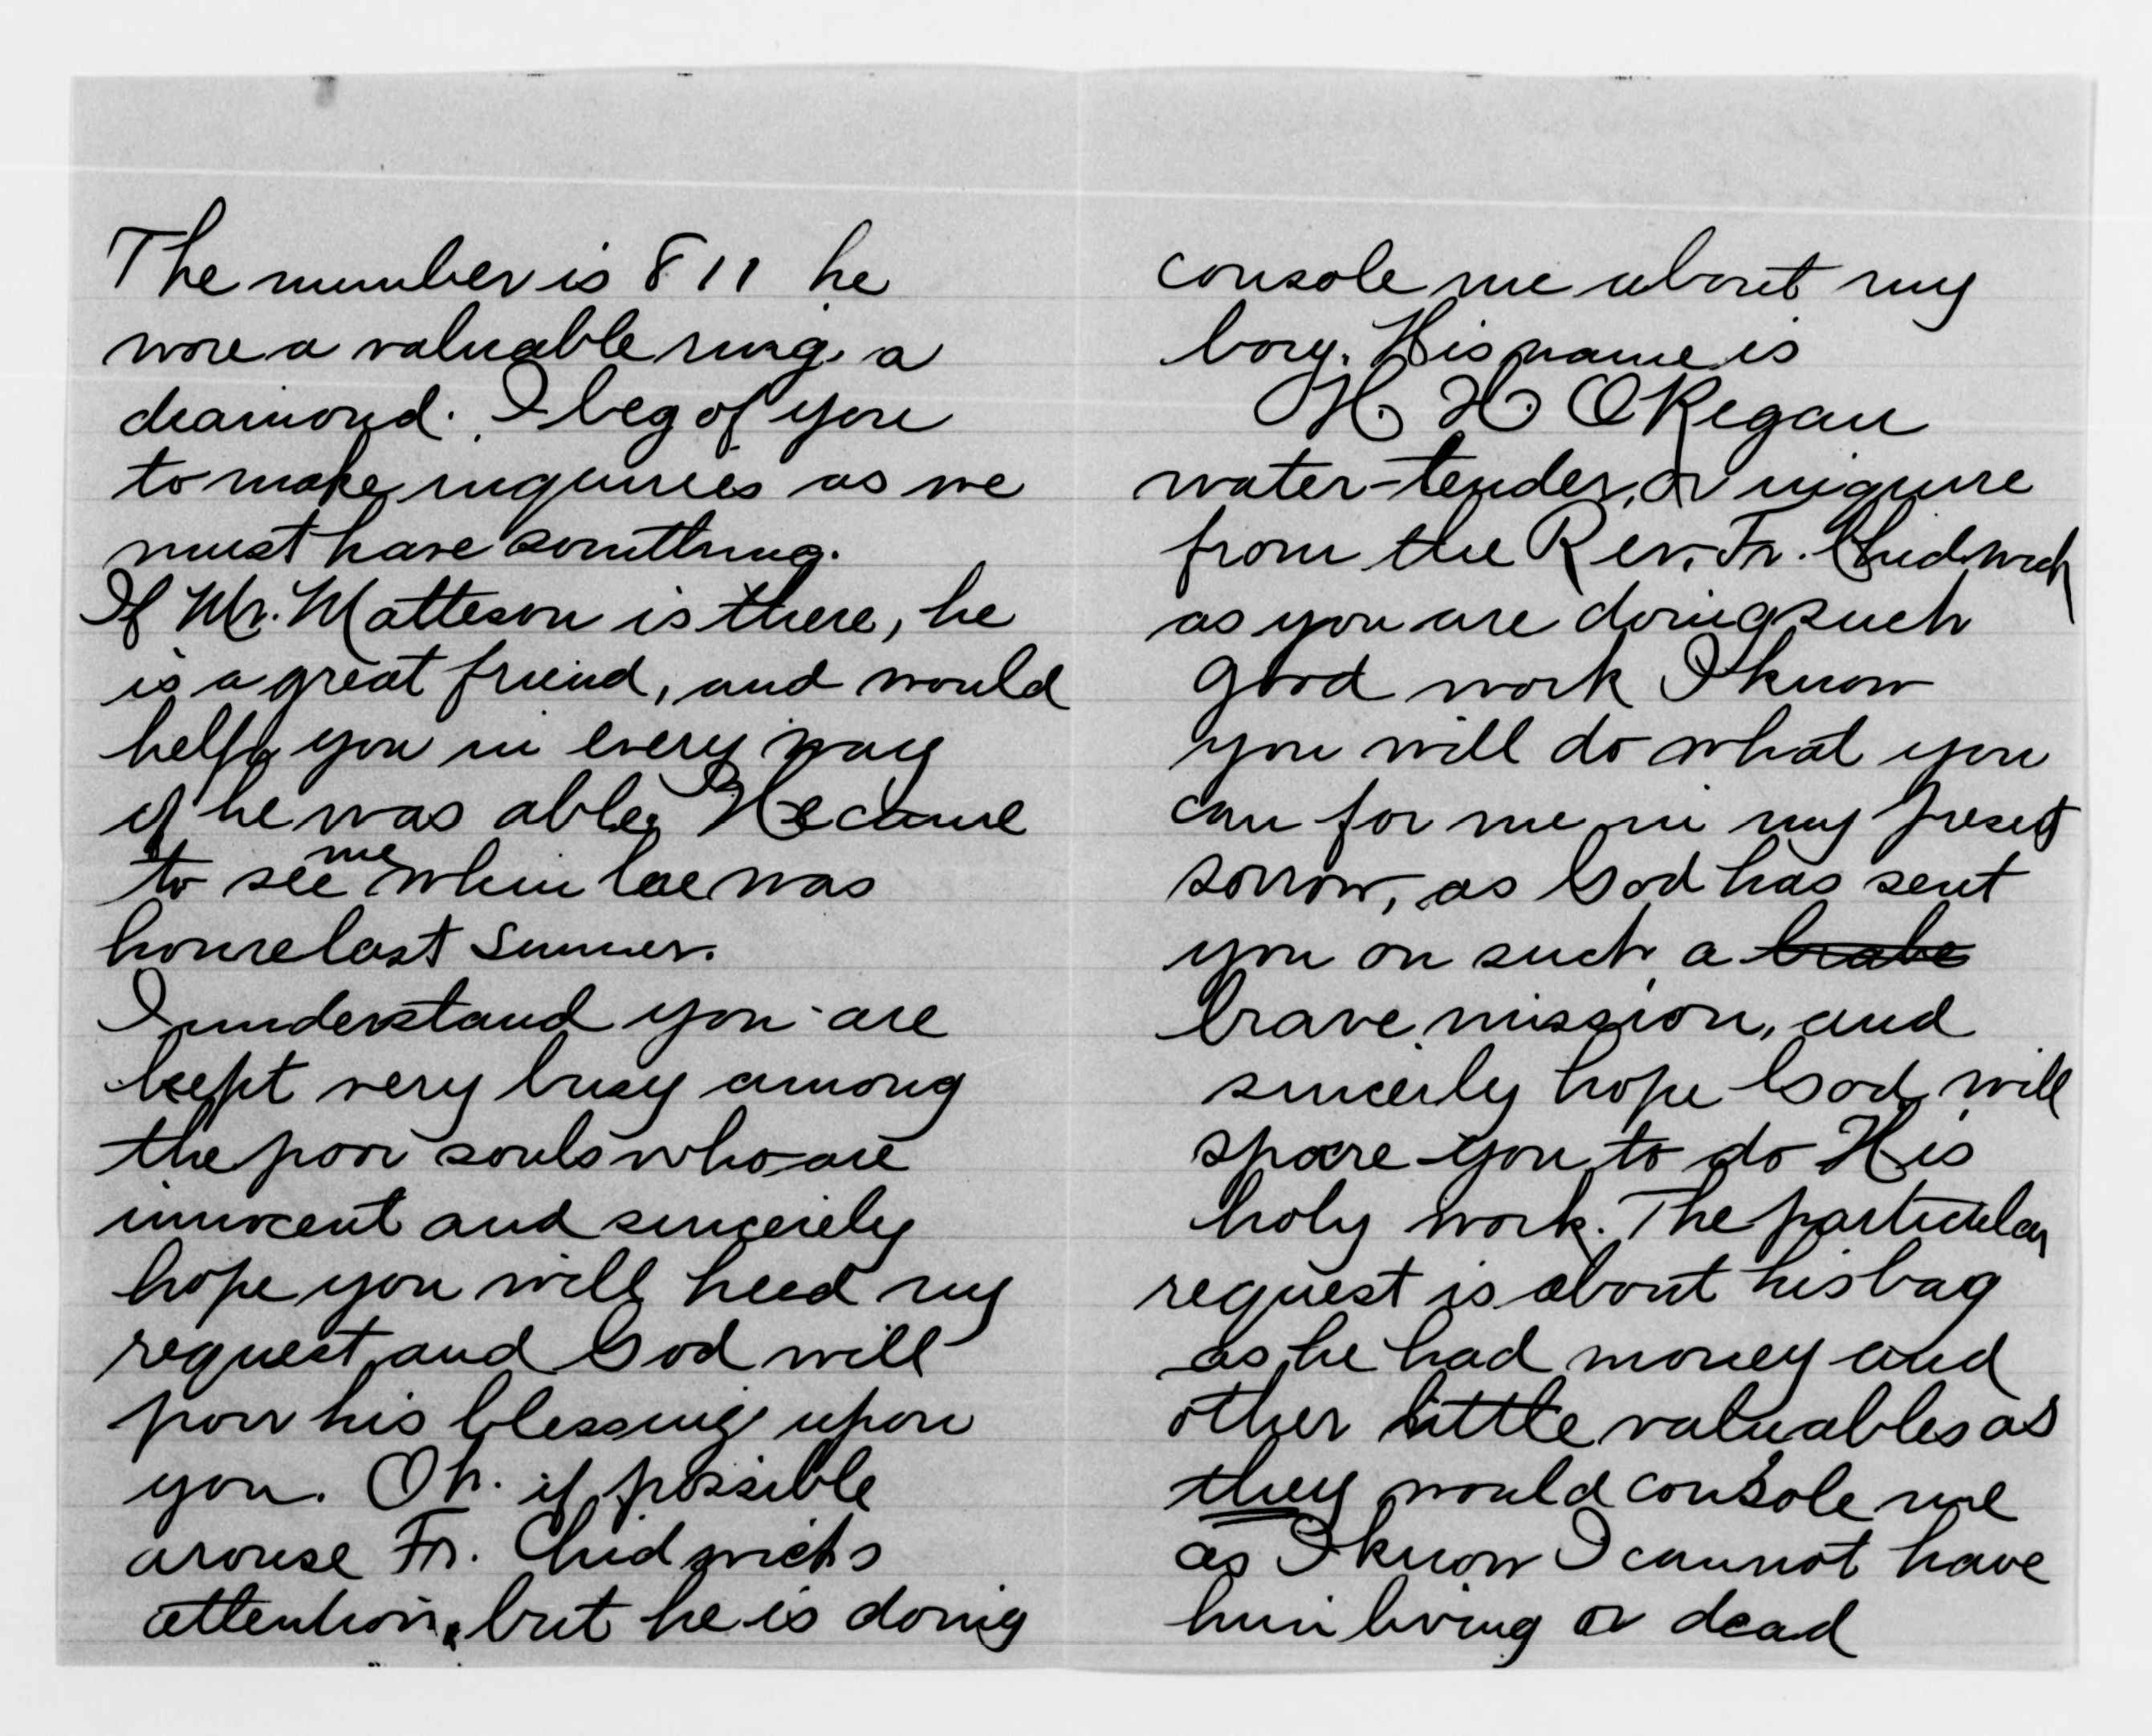 The number is 811 he
wore a valuable ring, a
diamond. I beg of you
to make inquiries as we
must have something.
If Mr. Matteson is there, he
is a great friend, and would
help you in every way
if he was able, He came
to see me when he was
home last summer.
I understand you are
kept very busy among
the poor souls who are
innocent and sincerely
hope you will heed my
request, and God will
pour his blessing upon
you. Oh. if possible
arouse Fr. Chidwicks
attention, but he is doing
console me about my
boy. His name is
H. H. O'Regan
water-tender, or inquire
from the Rev. Fr. Chidwick
as you are doing such
good work I know
you will do what you
can for me in my present
sorrow, as God has sent
you on such a brabe
brave mission, and
sincerly hope God will
spare you to do His
holy work. The particular
request is about his bag
as he had money and
other little valuables as
they would console me
as I know I cannot have
him living or dead